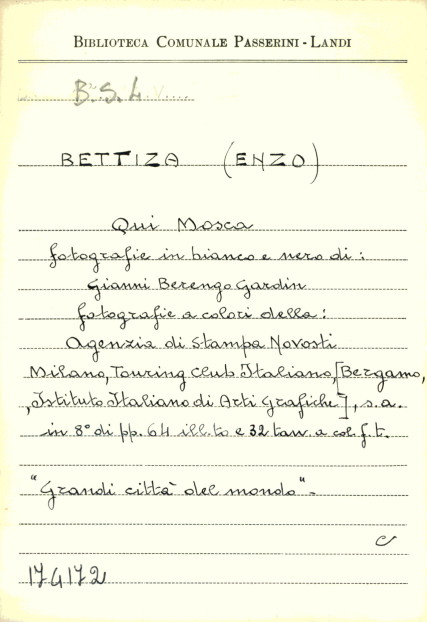 BIBLIOTECA COMUNALE PASSERINI - LANDI
B. S. L.
BETTIZA (ENZO)
Qui Mosca
fotografie in bianco e nero di :
Gianni Berengo Gardin
fotografie a colori della :
Agenzia di Stampa Novosti
Milano, Touring Club Italiano, [Bergamo,
, Istituto Italiano di Arti Grafiche], s. a.
in 8° di pp. 64 ill.to e 32 tav. a col. f. t.
"Grandi città del mondo".
C
174172